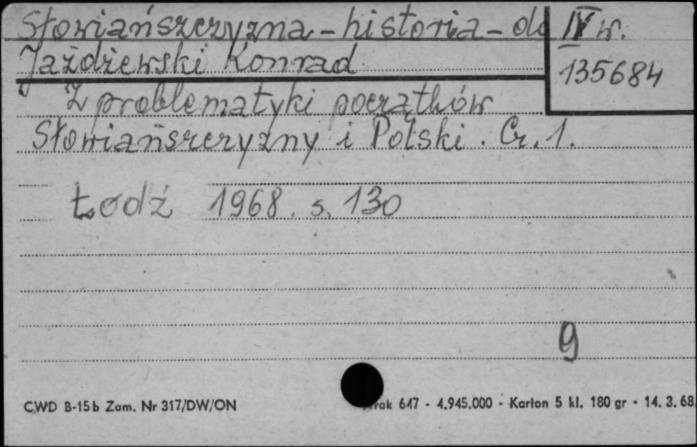 Słowiańszczyzna - historia - do IV w.
Jażdżewski Konrad
135684
Z problematyki początków
Słowiańszczyzny i Polski. Cz. 1.
Łódź 1968. s. 130
9
CWD B-15b Zam. Nr 317/DW/ON
647 - 4.945.000 - Karton 5 kl. 180 gr - 14. 3. 68